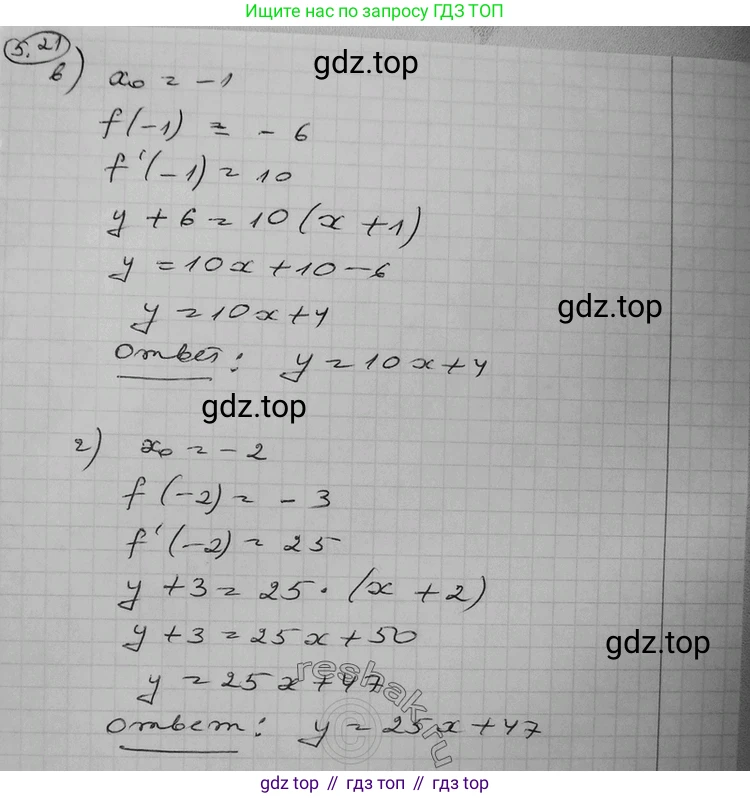 Ищите нас по запросу ГДЗ ТОП
5.21
gdz.top
в) x₀ = -1
f(-1) = -6
f'(-1) = 10
y + 6 = 10(x + 1)
y = 10x + 10 - 6
y = 10x + 4
gdz.top
Ответ: y = 10x + 4
gdz.top
г) x₀ = -2
f(-2) = -3
f'(-2) = 25
y + 3 = 25 · (x + 2)
y + 3 = 25x + 50
gdz.top
y = 25x + 47
reshak.ru
©
Ответ: y = 25x + 47
gdz top // гдз топ // gdz top